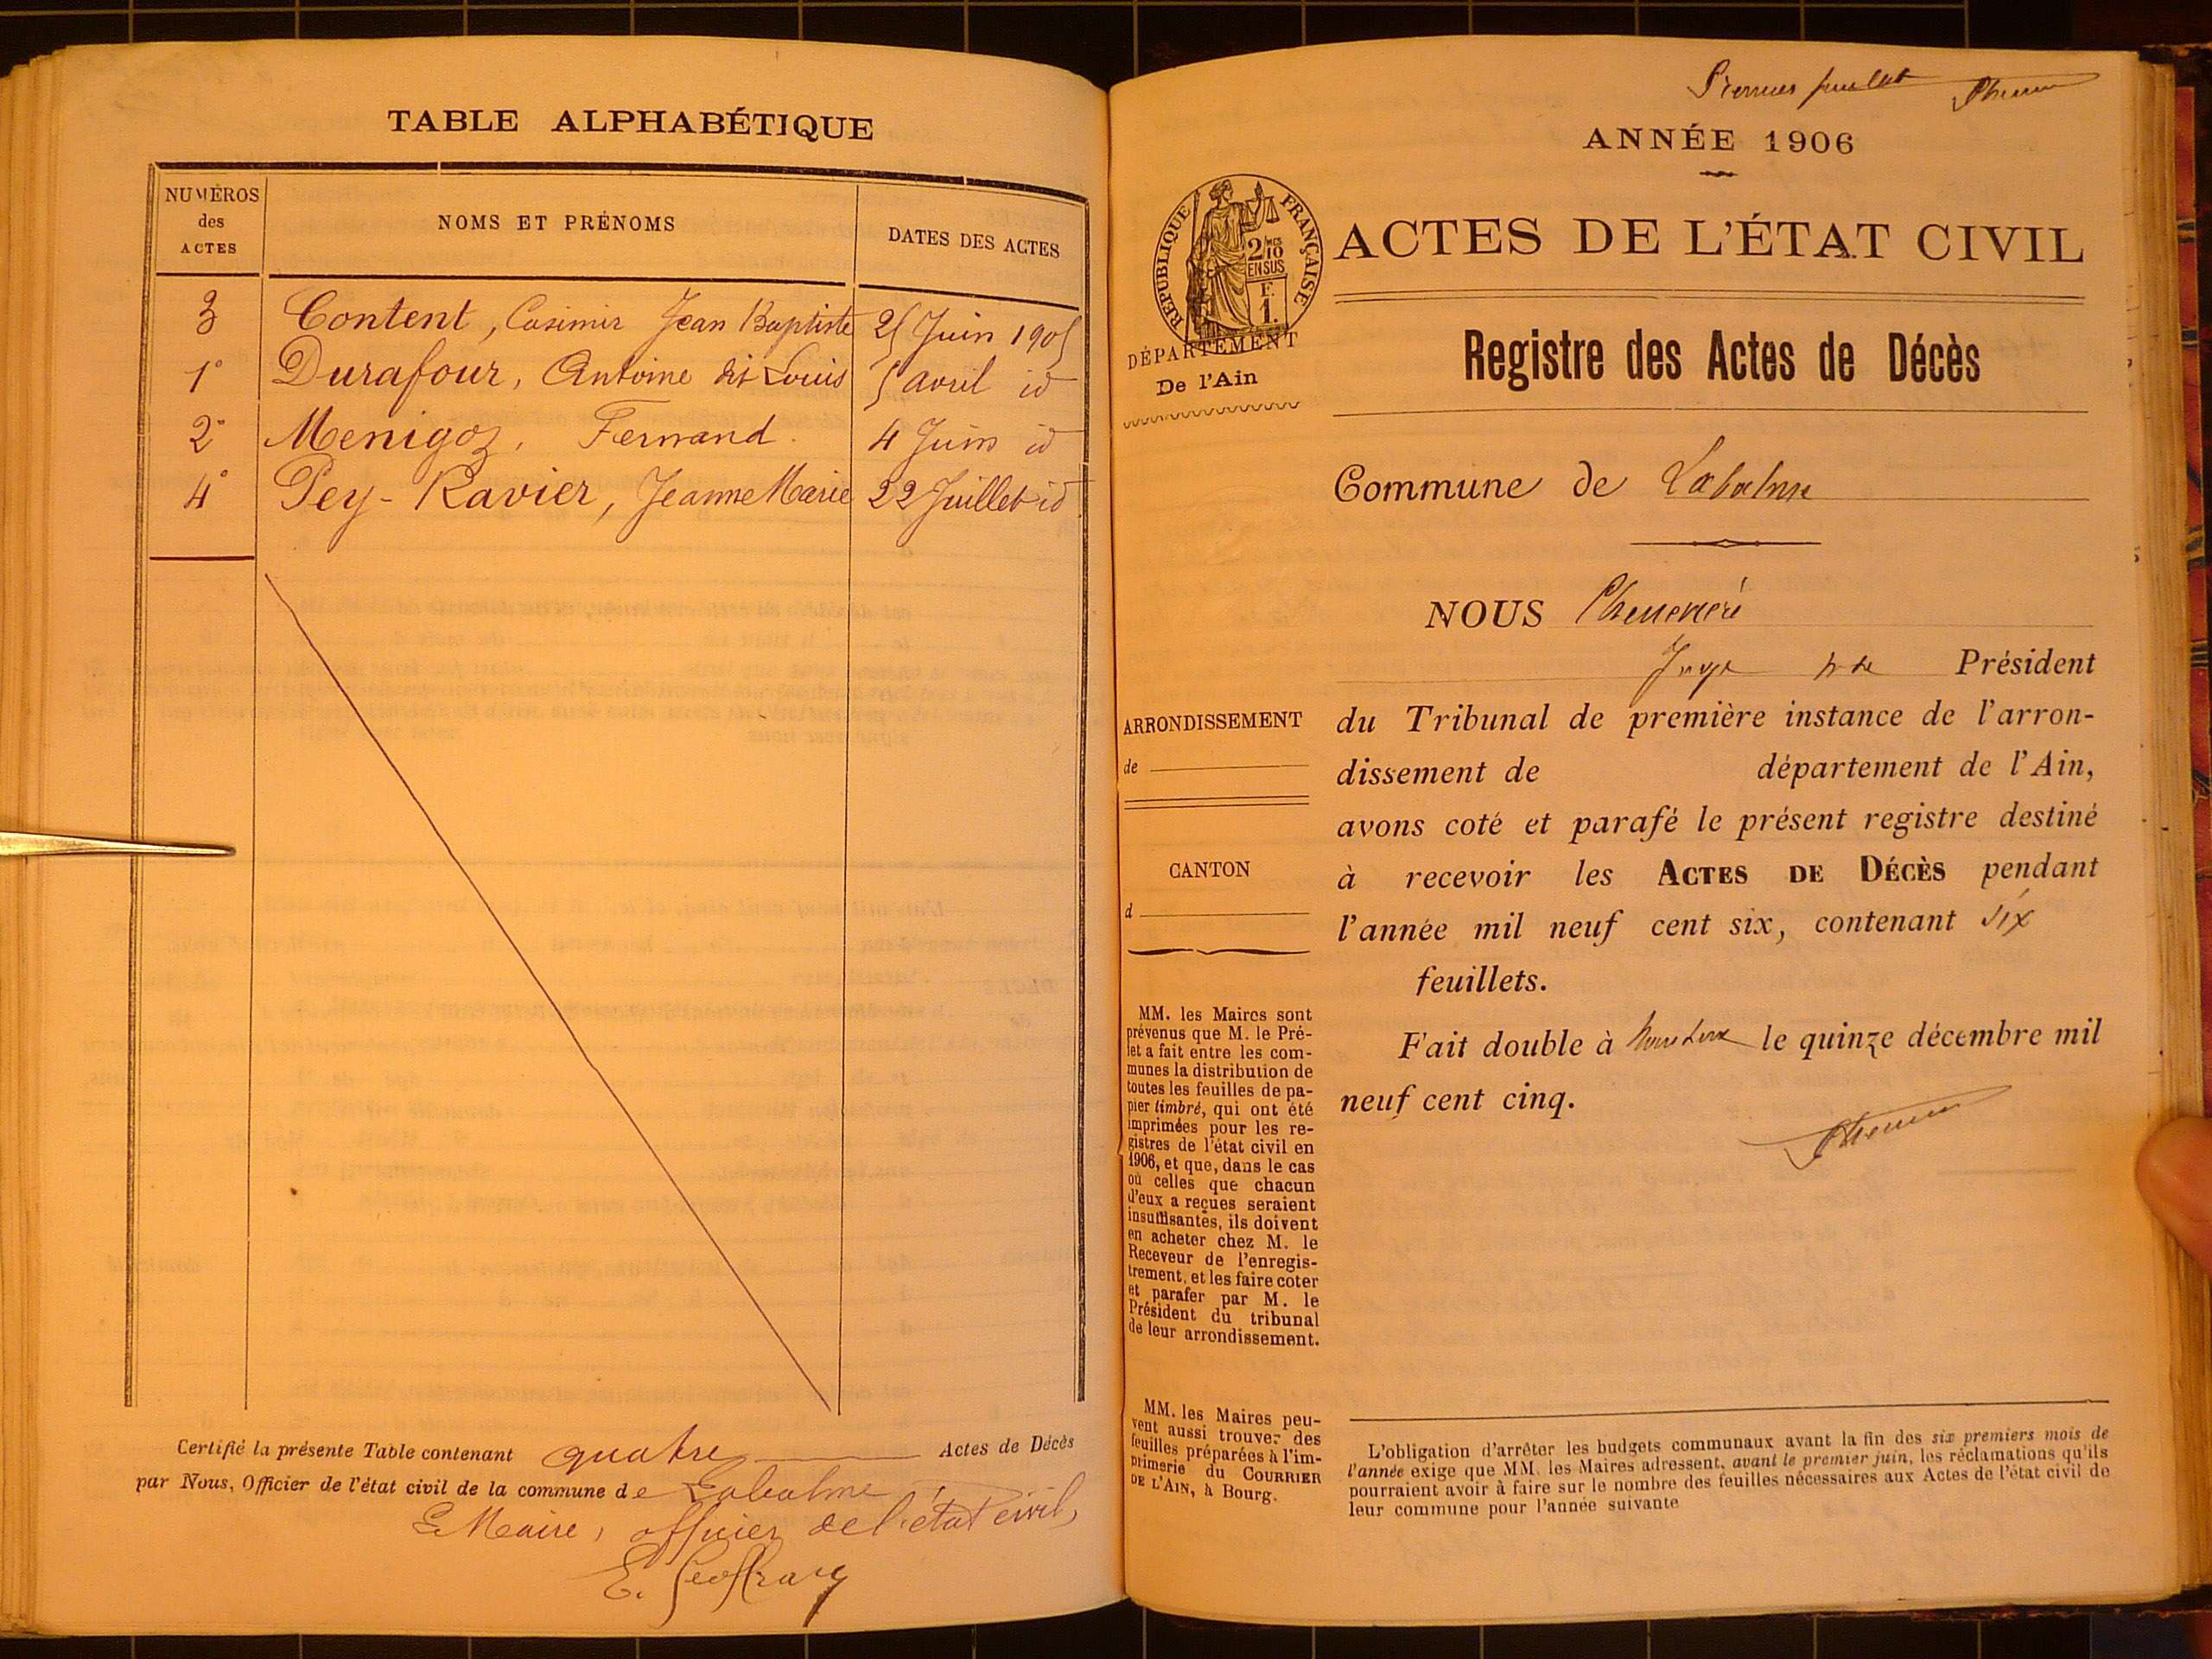 TABLE ALPHABÉTIQUE
NUMÉROS
des
ACTES
NOMS ET PRÉNOMS
DATES DES ACTES
3 Content, Casimir Jean Baptiste 25 Juin 1905
1° Durafour, Antoine dit Louis 5 avril id
2° Menigoz, Fernand. 4 Juin id
4° Pey-Ravier, Jeanne Marie 22 Juillet id
Certifié la présente Table contenant quatre Actes de Décès
par Nous, Officier de l'état civil de la commune de Labalme
Le Maire, officier de l'état civil,
E. Geoffray
Premier feuillet
ANNÉE 1906
RÉPUBLIQUE FRANÇAISE
2/10
EN SUS
F.
1.
DÉPARTEMENT
De l'Ain
ACTES DE L'ÉTAT CIVIL
Registre des Actes de Décès
Commune de Labalme
NOUS
Juge Président
du Tribunal de première instance de l'arron-
dissement de département de l'Ain,
avons coté et parafé le présent registre destiné
à recevoir les ACTES DE DÉCÈS pendant
l'année mil neuf cent six, contenant six
feuillets.
Fait double à le quinze décembre mil
neuf cent cinq.
ARRONDISSEMENT
de
CANTON
d
MM. les Maires sont
prévenus que M. le Pré-
fet a fait entre les com-
munes la distribution de
toutes les feuilles de pa-
pier timbré, qui ont été
imprimées pour les re-
gistres de l'état civil en
1906, et que, dans le cas
où celles que chacun
d'eux a reçues seraient
insuffisantes, ils doivent
en acheter chez M. le
Receveur de l'enregis-
trement, et les faire coter
et parafer par M. le
Président du tribunal
de leur arrondissement.
MM. les Maires peu-
vent aussi trouver des
feuilles préparées à l'im-
primerie du COURRIER
DE L'AIN, à Bourg.
L'obligation d'arrêter les budgets communaux avant la fin des six premiers mois de
l'année exige que MM. les Maires adressent, avant le premier juin, les réclamations qu'ils
pourraient avoir à faire sur le nombre des feuilles nécessaires aux Actes de l'état civil de
leur commune pour l'année suivante